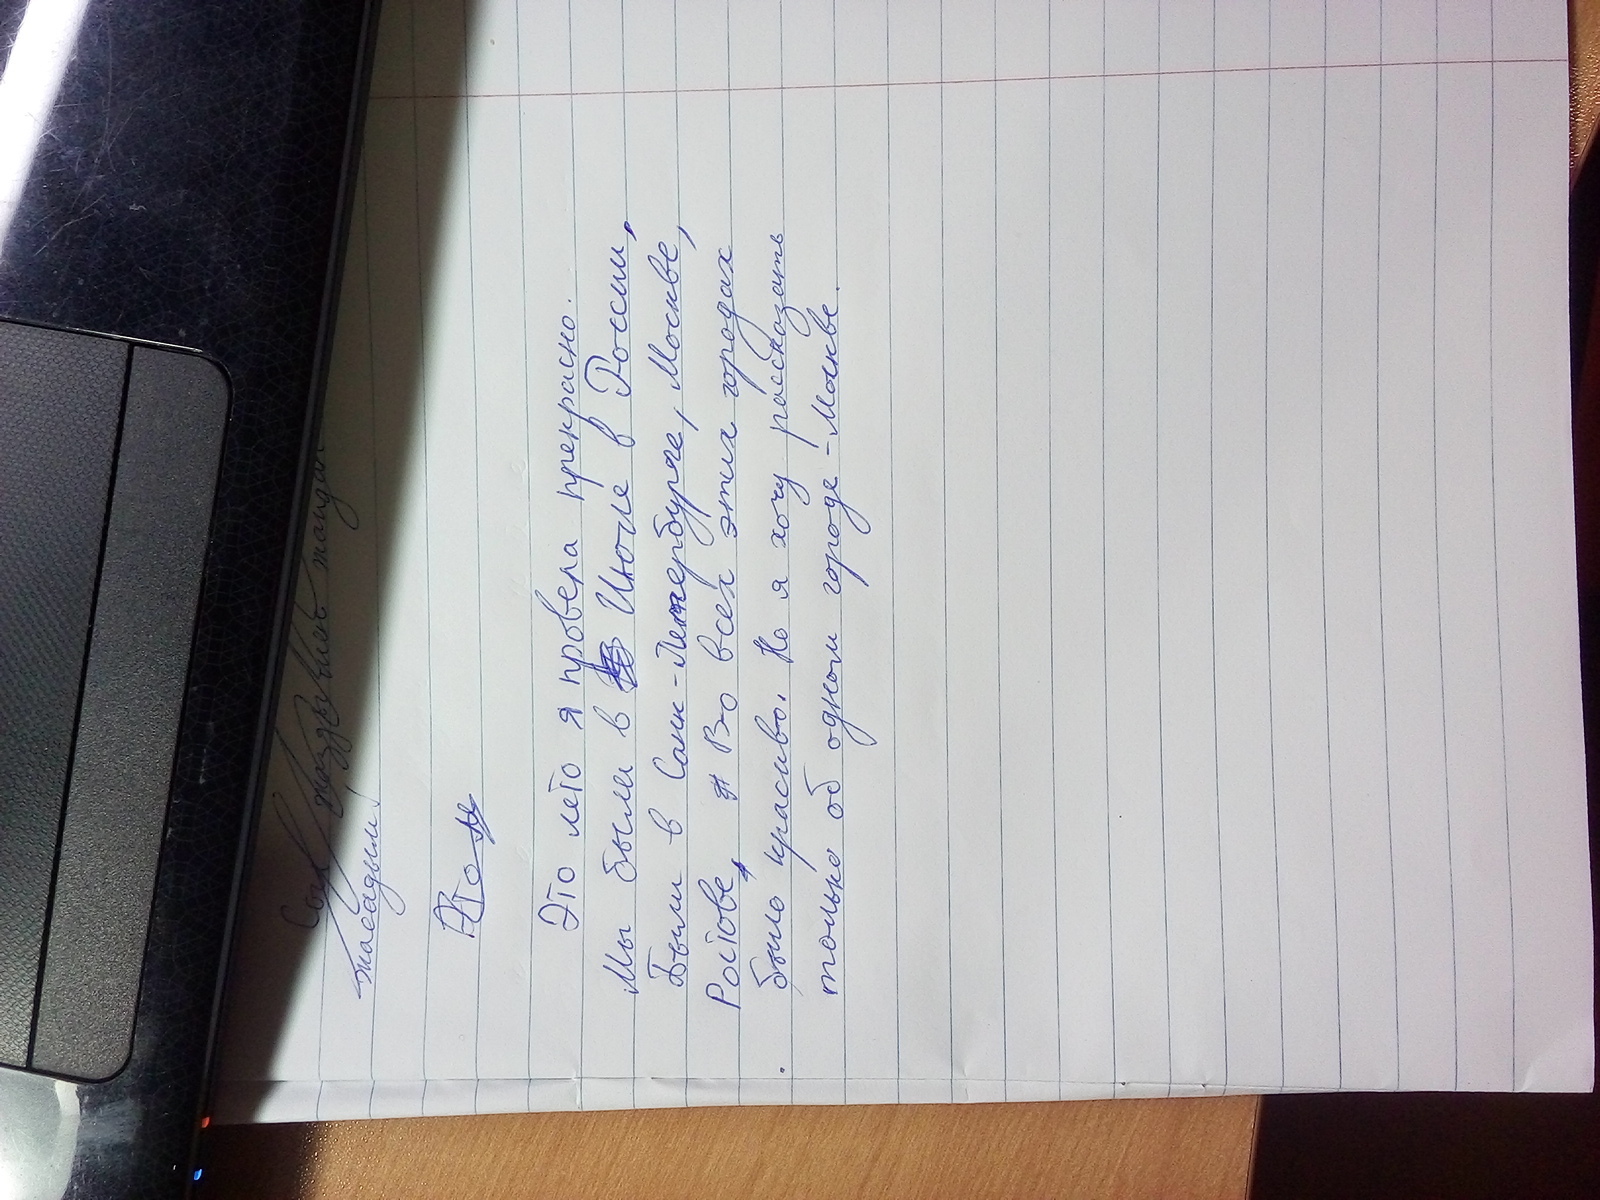 Это лето я провела прекрасно.
Мы были в Июле в России,
Были в Санк-Петербурге, Москве,
Ростове, Во всех этих городах
было красиво. Но я хочу рассказать
только об одном городе - Москве.